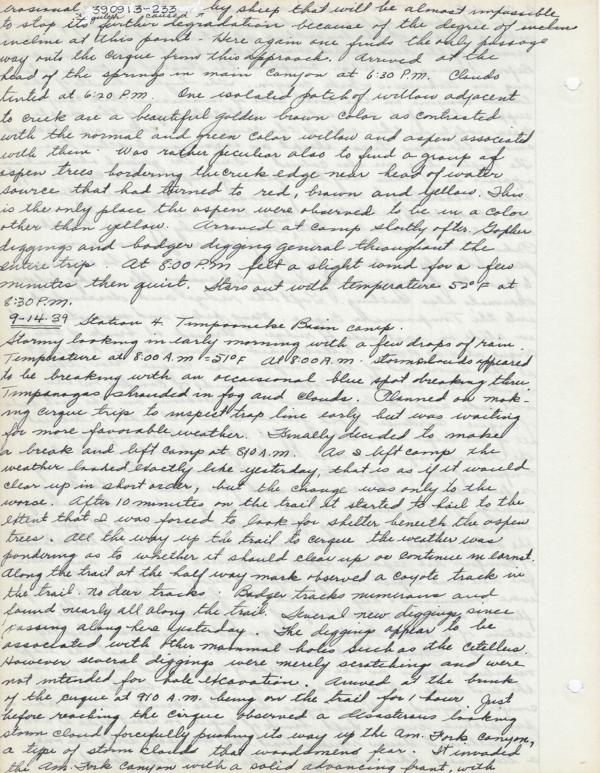 erosional 390913-233 by sheep that will be almost impossible
gulch caused
to stop its further degradation because of the degree of incline
incline at this point. Here again one finds the only passage
way onto the cirque from this approach. Arrived at the
head of the springs in main canyon at 6:30 P.M. Clouds
tinted at 6:20 P.M. One isolated patch of willow adjacent
to creek are a beautiful golden brown color as contrasted
with the normal and green color willow and aspen associated
with them. Was rather peculiar also to find a group of
aspen trees bordering the creek edge near head of water
source that had turned to red, brown and yellow. This
is the only place the aspen were observed to be in a color
other than yellow. Arrived at camp shortly after. Gopher
diggings and badger digging general throughout the
entire trip. At 8:00 P.M. felt a slight wind for a few
minutes then quiet. Stars out with temperature 52°F at
8:30 P.M.
9-14-39 Station 4. Timpooneke Basin camp.
Stormy looking in early morning with a few drops of rain.
Temperature at 8:00 A.M. = 51°F At 8:00 A.M. storm clouds appeared
to be breaking with an occaisional blue spot breaking thru.
Timpanogas shrouded in fog and clouds. Planned on mak-
ing cirque trip to inspect trap line early but was waiting
for more favorable weather. Finally decided to make
a break and left camp at 810 A.M. As I left camp the
weather looked exactly like yesterday, that is as if it would
clear up in short order, but the change was only to the
worse. After 10 minutes on the trail it started to hail to the
extent that I was forced to look for shelter beneath the aspen
trees. All the way up the trail to cirque the weather was
pondering as to whether it should clear up or continue in earnest.
Along the trail at the half way mark observed a coyote track in
the trail. no deer tracks. Badger tracks numerous and
found nearly all along the trail. Several new diggings since
passing along here yesterday. The diggings appear to be
associated with other mammal holes such as the citellus.
However several diggings were merely scratching and were
not intended for hole excavation. Arrived at the brink
of the cirque at 910 A.M. being on the trail for 1 hour. Just
before reaching the cirque observed a disasterous looking
storm cloud forcefully pushing its way up the Am. Fork canyon,
a type of storm clouds that woodsmens fear. It invaded
the Am. Fork canyon with a solid advancing front, with